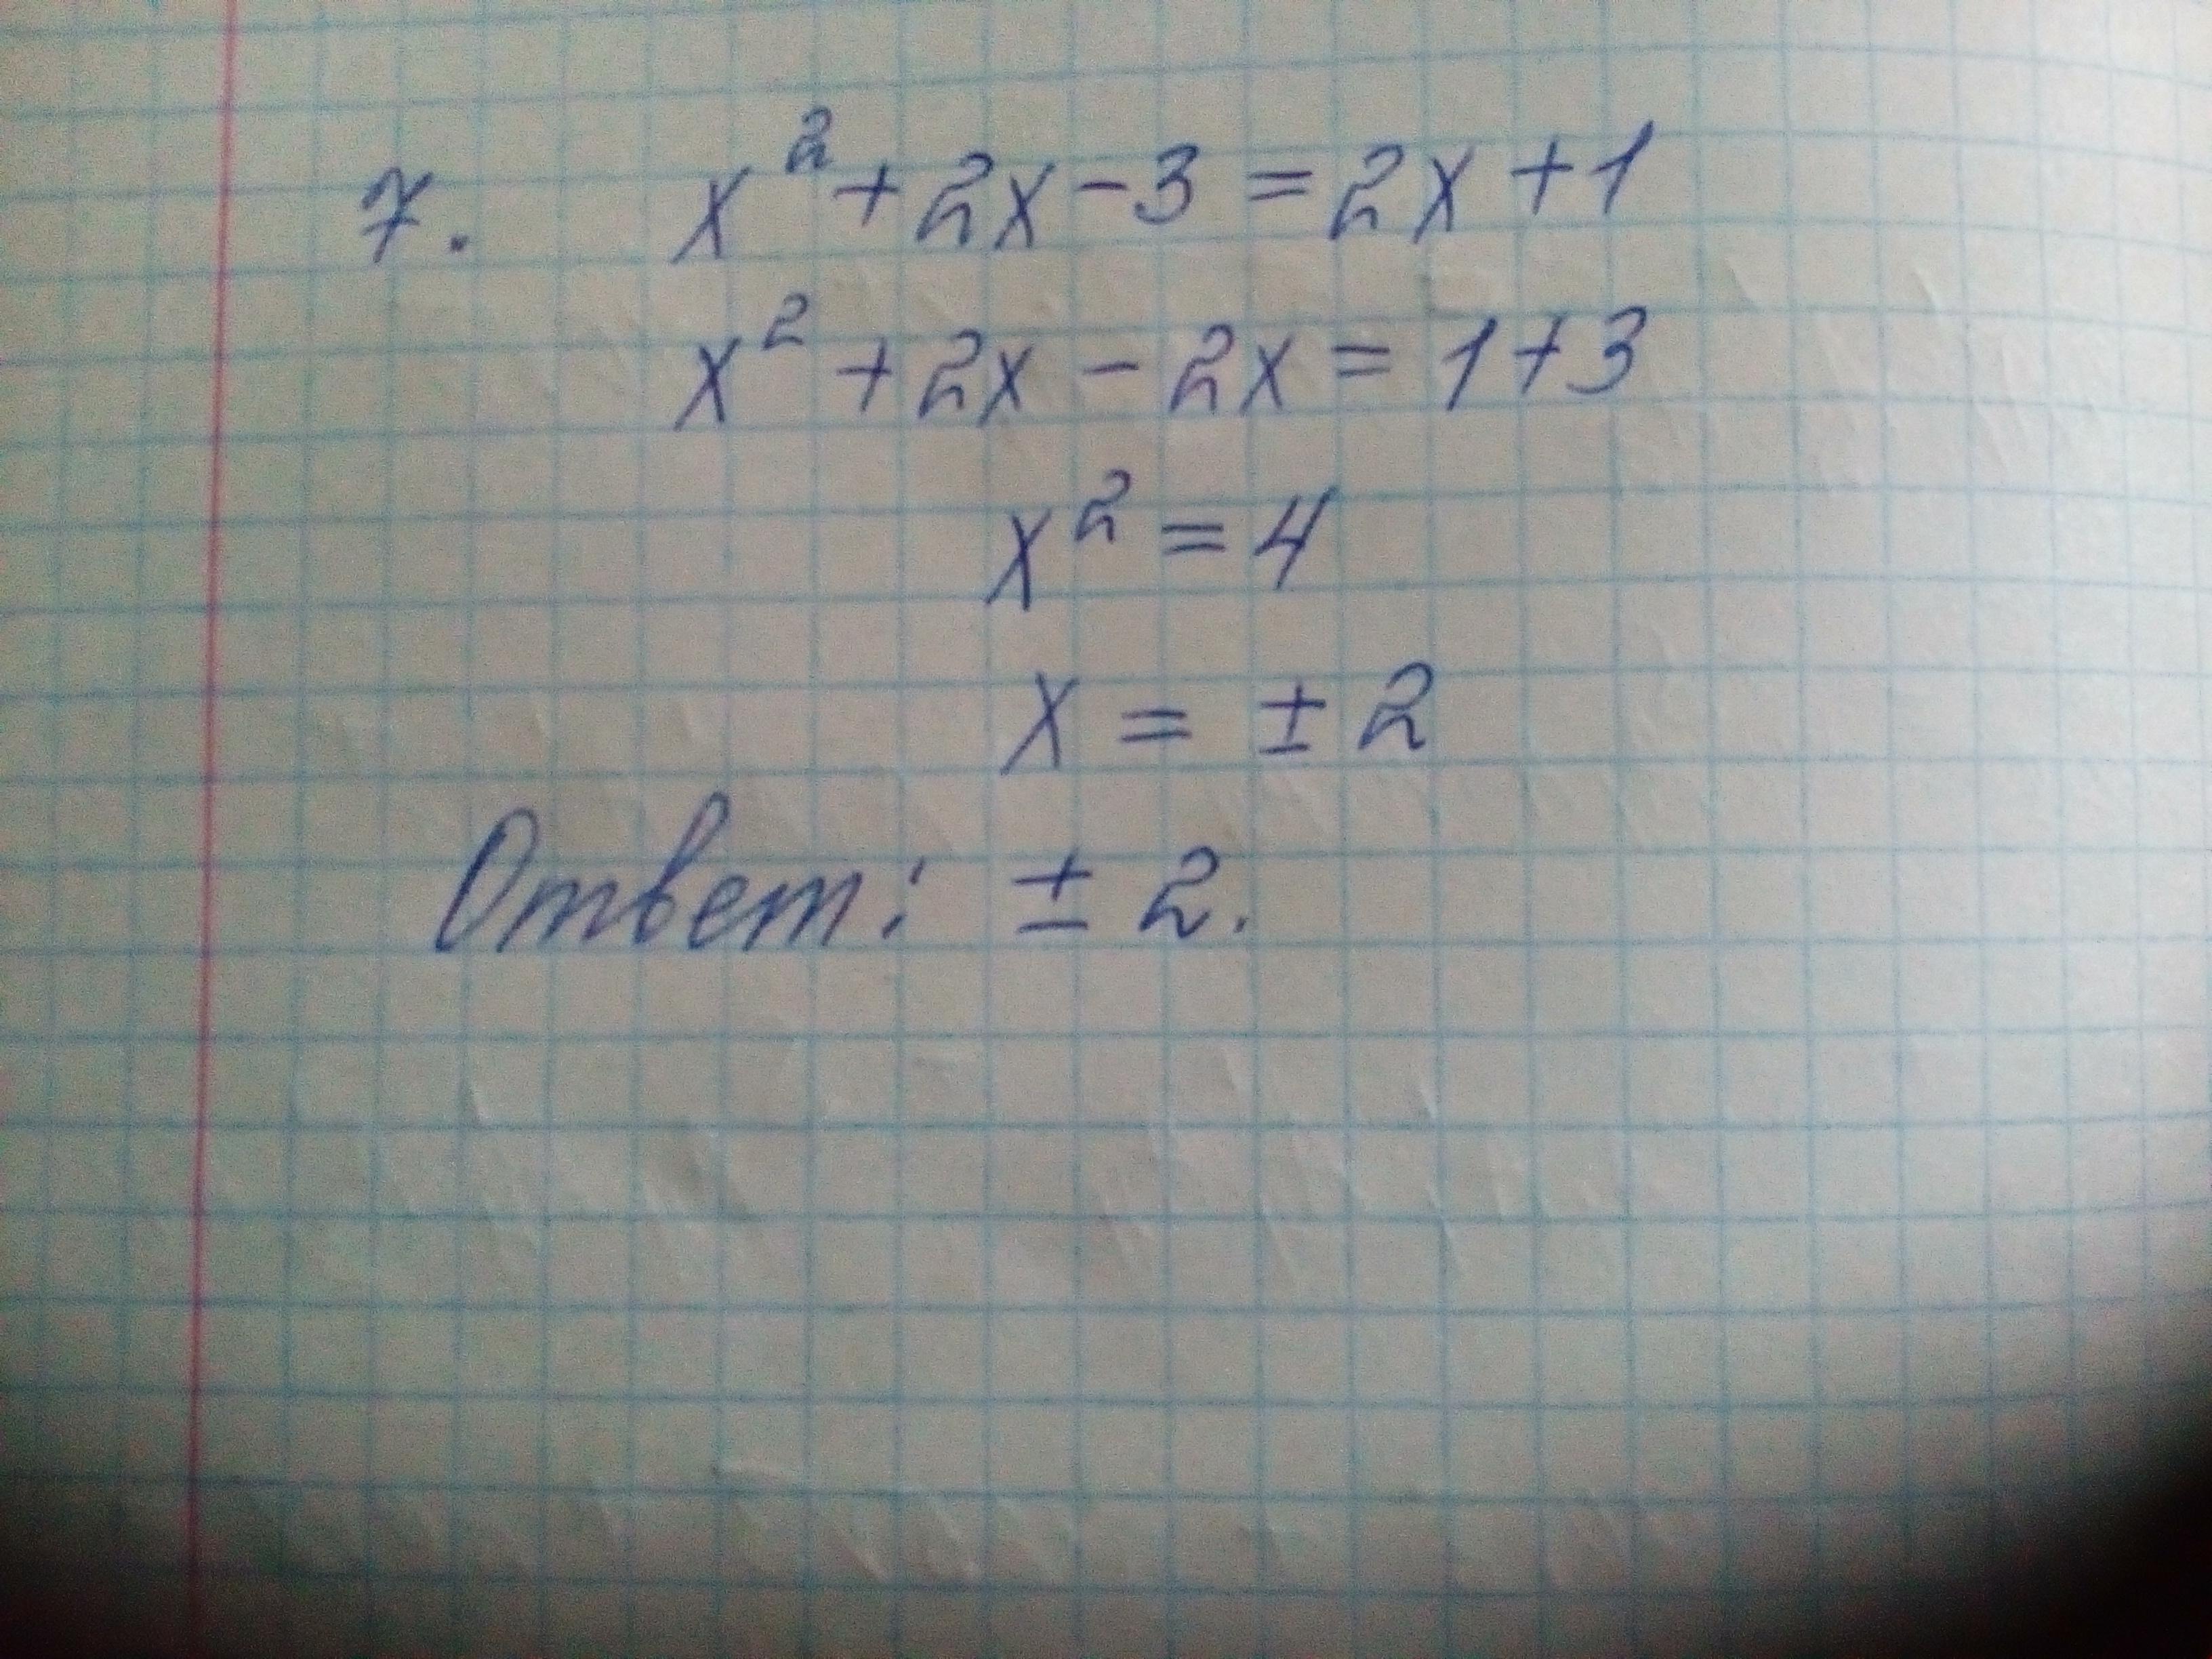 7. x² + 2x - 3 = 2x + 1
x² + 2x - 2x = 1 + 3
x² = 4
x = ± 2
Ответ: ± 2.